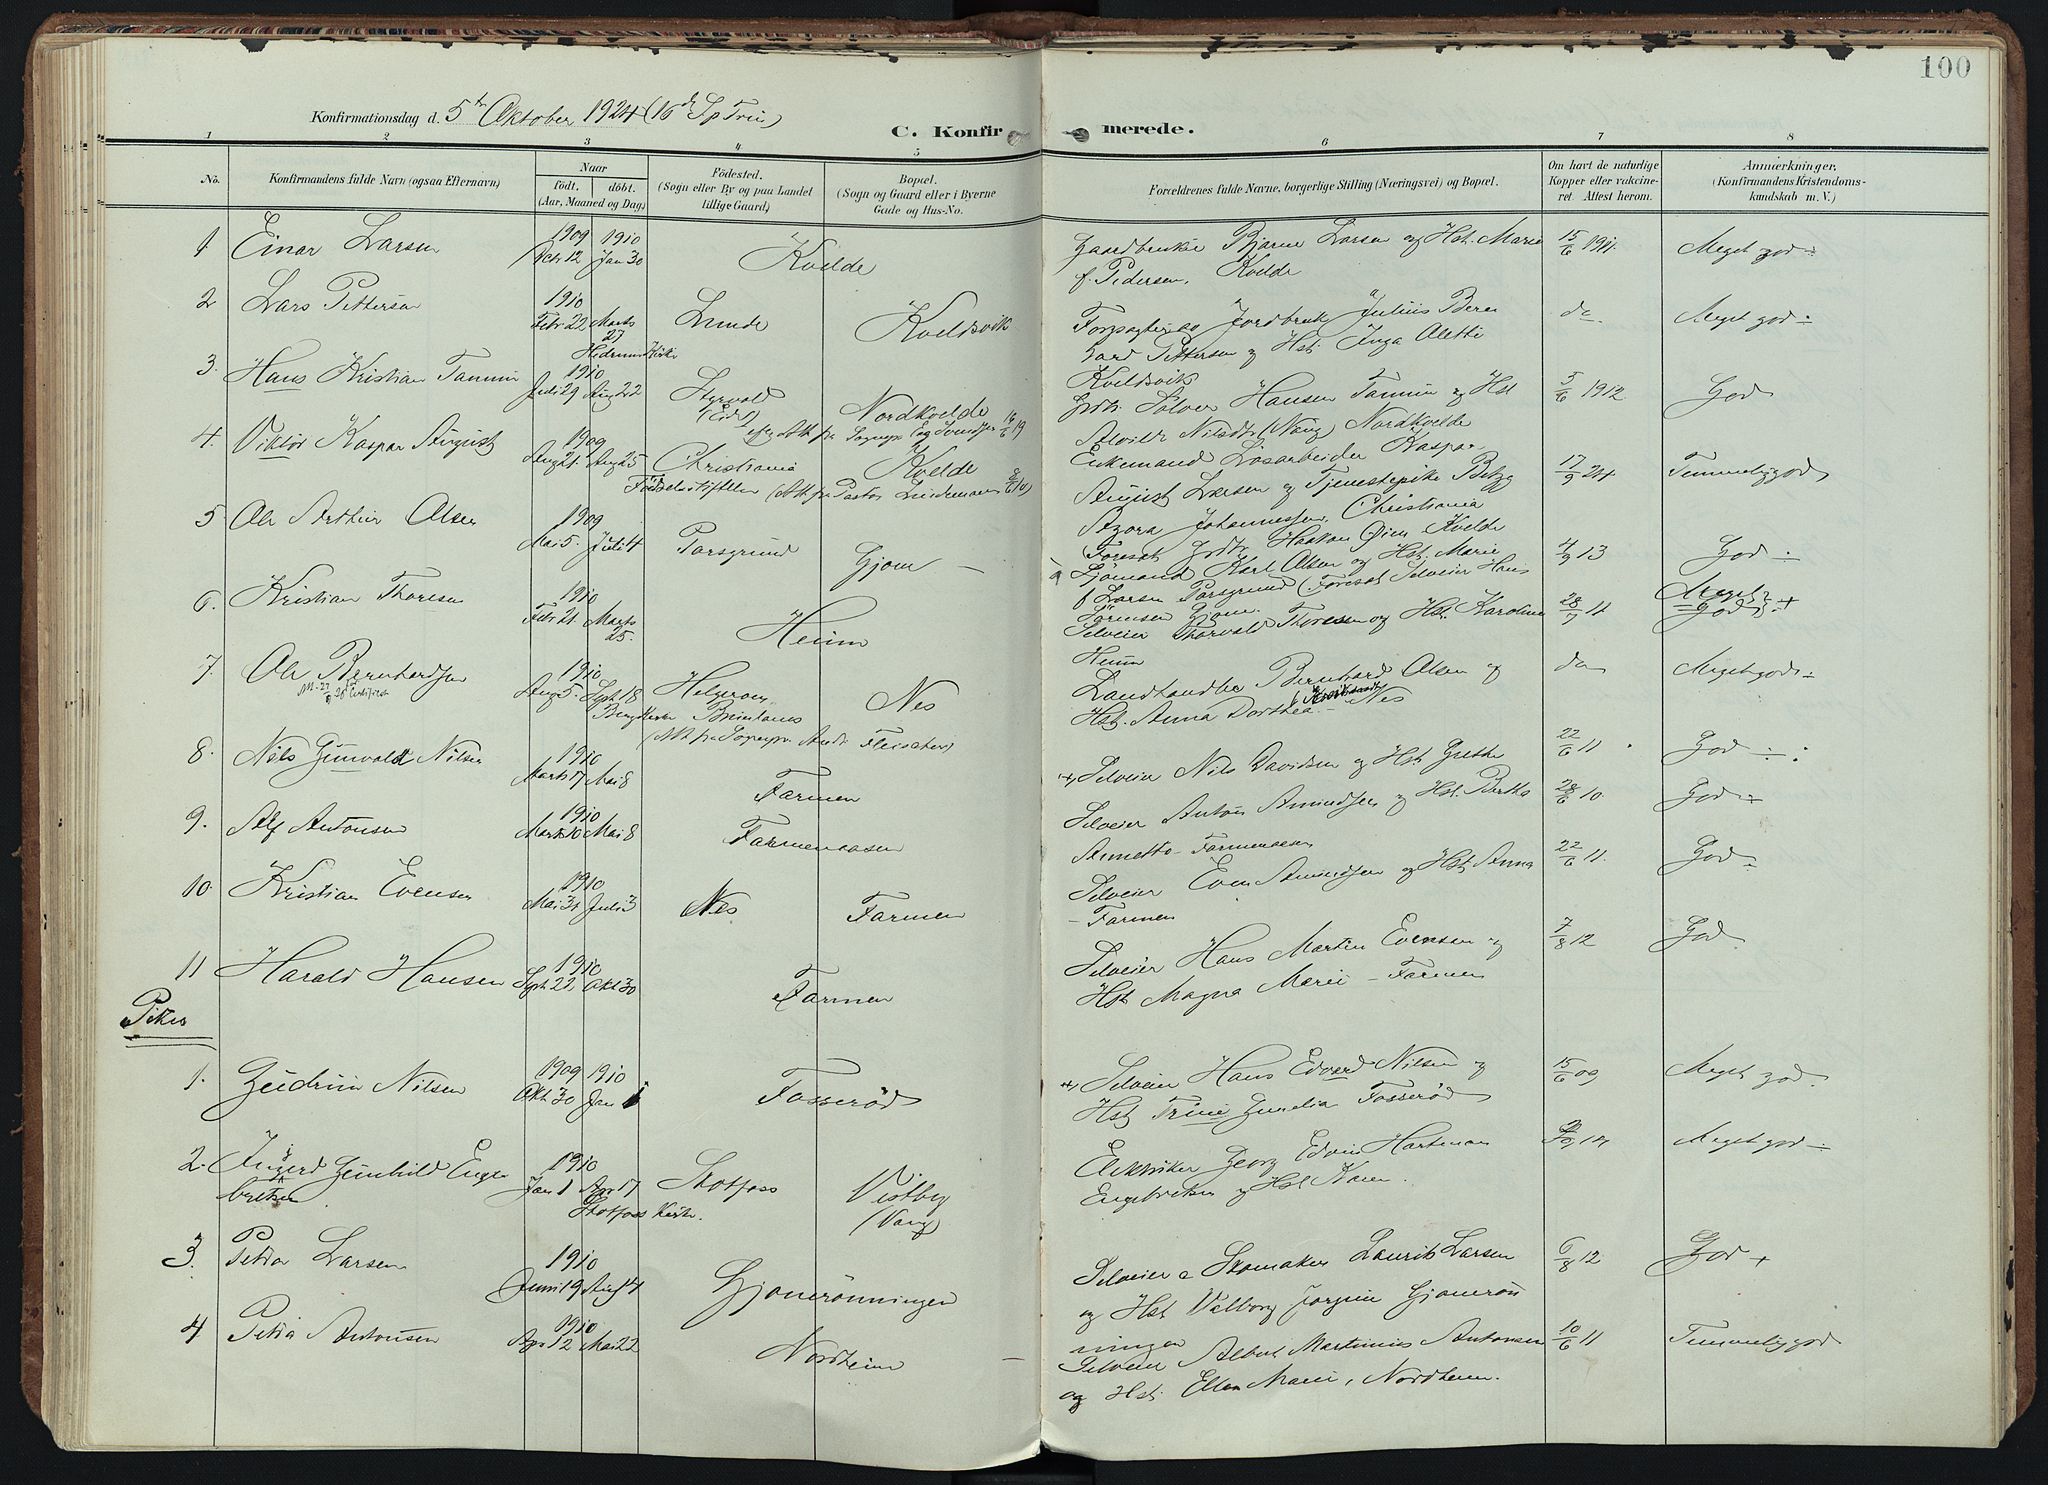 100
Konfirmationsdag d. 5te Oktober 1924 (16de S. p. Trin)
C. Konfirmerede.
1 2 3 4 5 6 7 8
No. Konfirmandens fulde Navn (ogsaa Efternavn) Naar født. døbt. (Aar, Maaned og Dag) Fødested. (Sogn eller By og paa Landet tillige Gaard) Bopæl. (Sogn og Gaard eller i Byerne Gade og Hus-No. Forældrenes fulde Navne, borgerlige Stilling (Næringsvei) og Bopæl. Om havt de naturlige Kopper eller vakcineret. Attest herom. Anmærkninger. (Konfirmandens Kristendomskundskab m. V.)
1 Einar Larsen 1909 12 1910 Jan 30 Kvelde Gaardbruker Bjarne Larsen og Hst. Marie f. Pedersen, Kvelde 15/6 1911. Meget god
2 Lars Pettersen 1910 Febr 22 Marts 27 Hedrum Kirke Lunde Kveldsvik Jordbruk Julius Pettersen og Hst Inga Aletti Kveldsvik do Meget god
3. Hans Kristian Tamin 1910 Juli 29 Aug 22 Styrvold (Eid.) Nordkvelde Grdbr. Sølver Hansen Tamin og Hst Alvilde Nilsdtr (Vang) Nordkvelde 5/6 1912 God
4. Viktor Kaspar August 1909 Aug 21. Aug 25 Christiania Fødselsstiftelse Kvelde (Att. fra Pastor Lindeman) Enkemand Løsarbeider Kaspar August Larsen og Tjenestepike Borg Azora Johannessen, Christiania Foresat Grdbr. Haakon Øien Kvelde 17/9 24 Temmelig god
5 Ole Arthur Olsen 1909 Mai 5. Juli 4 Porsgrund Gjone Sjømand Karl Olsen og Hst. Marie f Larsen Porsgrund (Foresat Selveier Hans Sørensen Gjone. 4/9 13 God
6. Kristian Thoresen 1910 Febr 21. Marts 25. Heum Selveier Thorvald Thoresen og Hst. Karoline Heum 28/7 11 Meget God
7. Ole Bernhardsen 1910 Aug 5. Sept 18 Helgeroen, Brunlanes Nes Landhandler Bernhard Olsen og Hst. Anna Dorthea - Nes do Meget god
8. Nils Gunvald Nilsen 1910 Marts 17 Mai 8 Farmen Selveier Nils Davidsen og Hst Grethe 22/6 11 God
9. Alf Antonsen 1910 Marts 10 Mai 8 Farmenaasen Selveier Anton Amundsen og Hst. Bertha Annette - Farmenaasen 28/6 10. God
10. Kristian Evensen 1910 Mai 31 Juli 3 Nes Farmen Selveier Even Amundsen og Hst Anna - Farmen 22/6 11. God
11 Harald Hansen 1910 Sept 22 Okt 30 Farmen Selveier Hans Martin Evensen og Hst Magna Marie - Farmen 7/8 12 God
Piker
1. Gudrun Nilsen 1909 Okt. 30 1910 Jan 1 Fosserød Selveier Hans Edvard Nilsen og Hst Trine Aurelia Fosserød 15/6 09 Meget god.
2. Ingerd Gunhild Engebretsen 1910 Jan 1 Apr 17 Skotfoss Kirke. Skotfoss Vestby (Vang) Elektriker Georg Edvin Hartman Engebretsen og Hst Karen. Meget god
3. Petra Larsen 1910 Juni 19 Aug 14 Gjonerønningen Selveier o Skomaker Lauritz Larsen og Hst Valborg Jørgine Gjonerønningen 6/8 12 God
4 Petra Antonsen 1910 Apr 12 Mai 22 Nordheim Selveier Albert Martinius Antonsen og Hst Ellen Marie, Nordheim. 10/6 11 Temmelig god